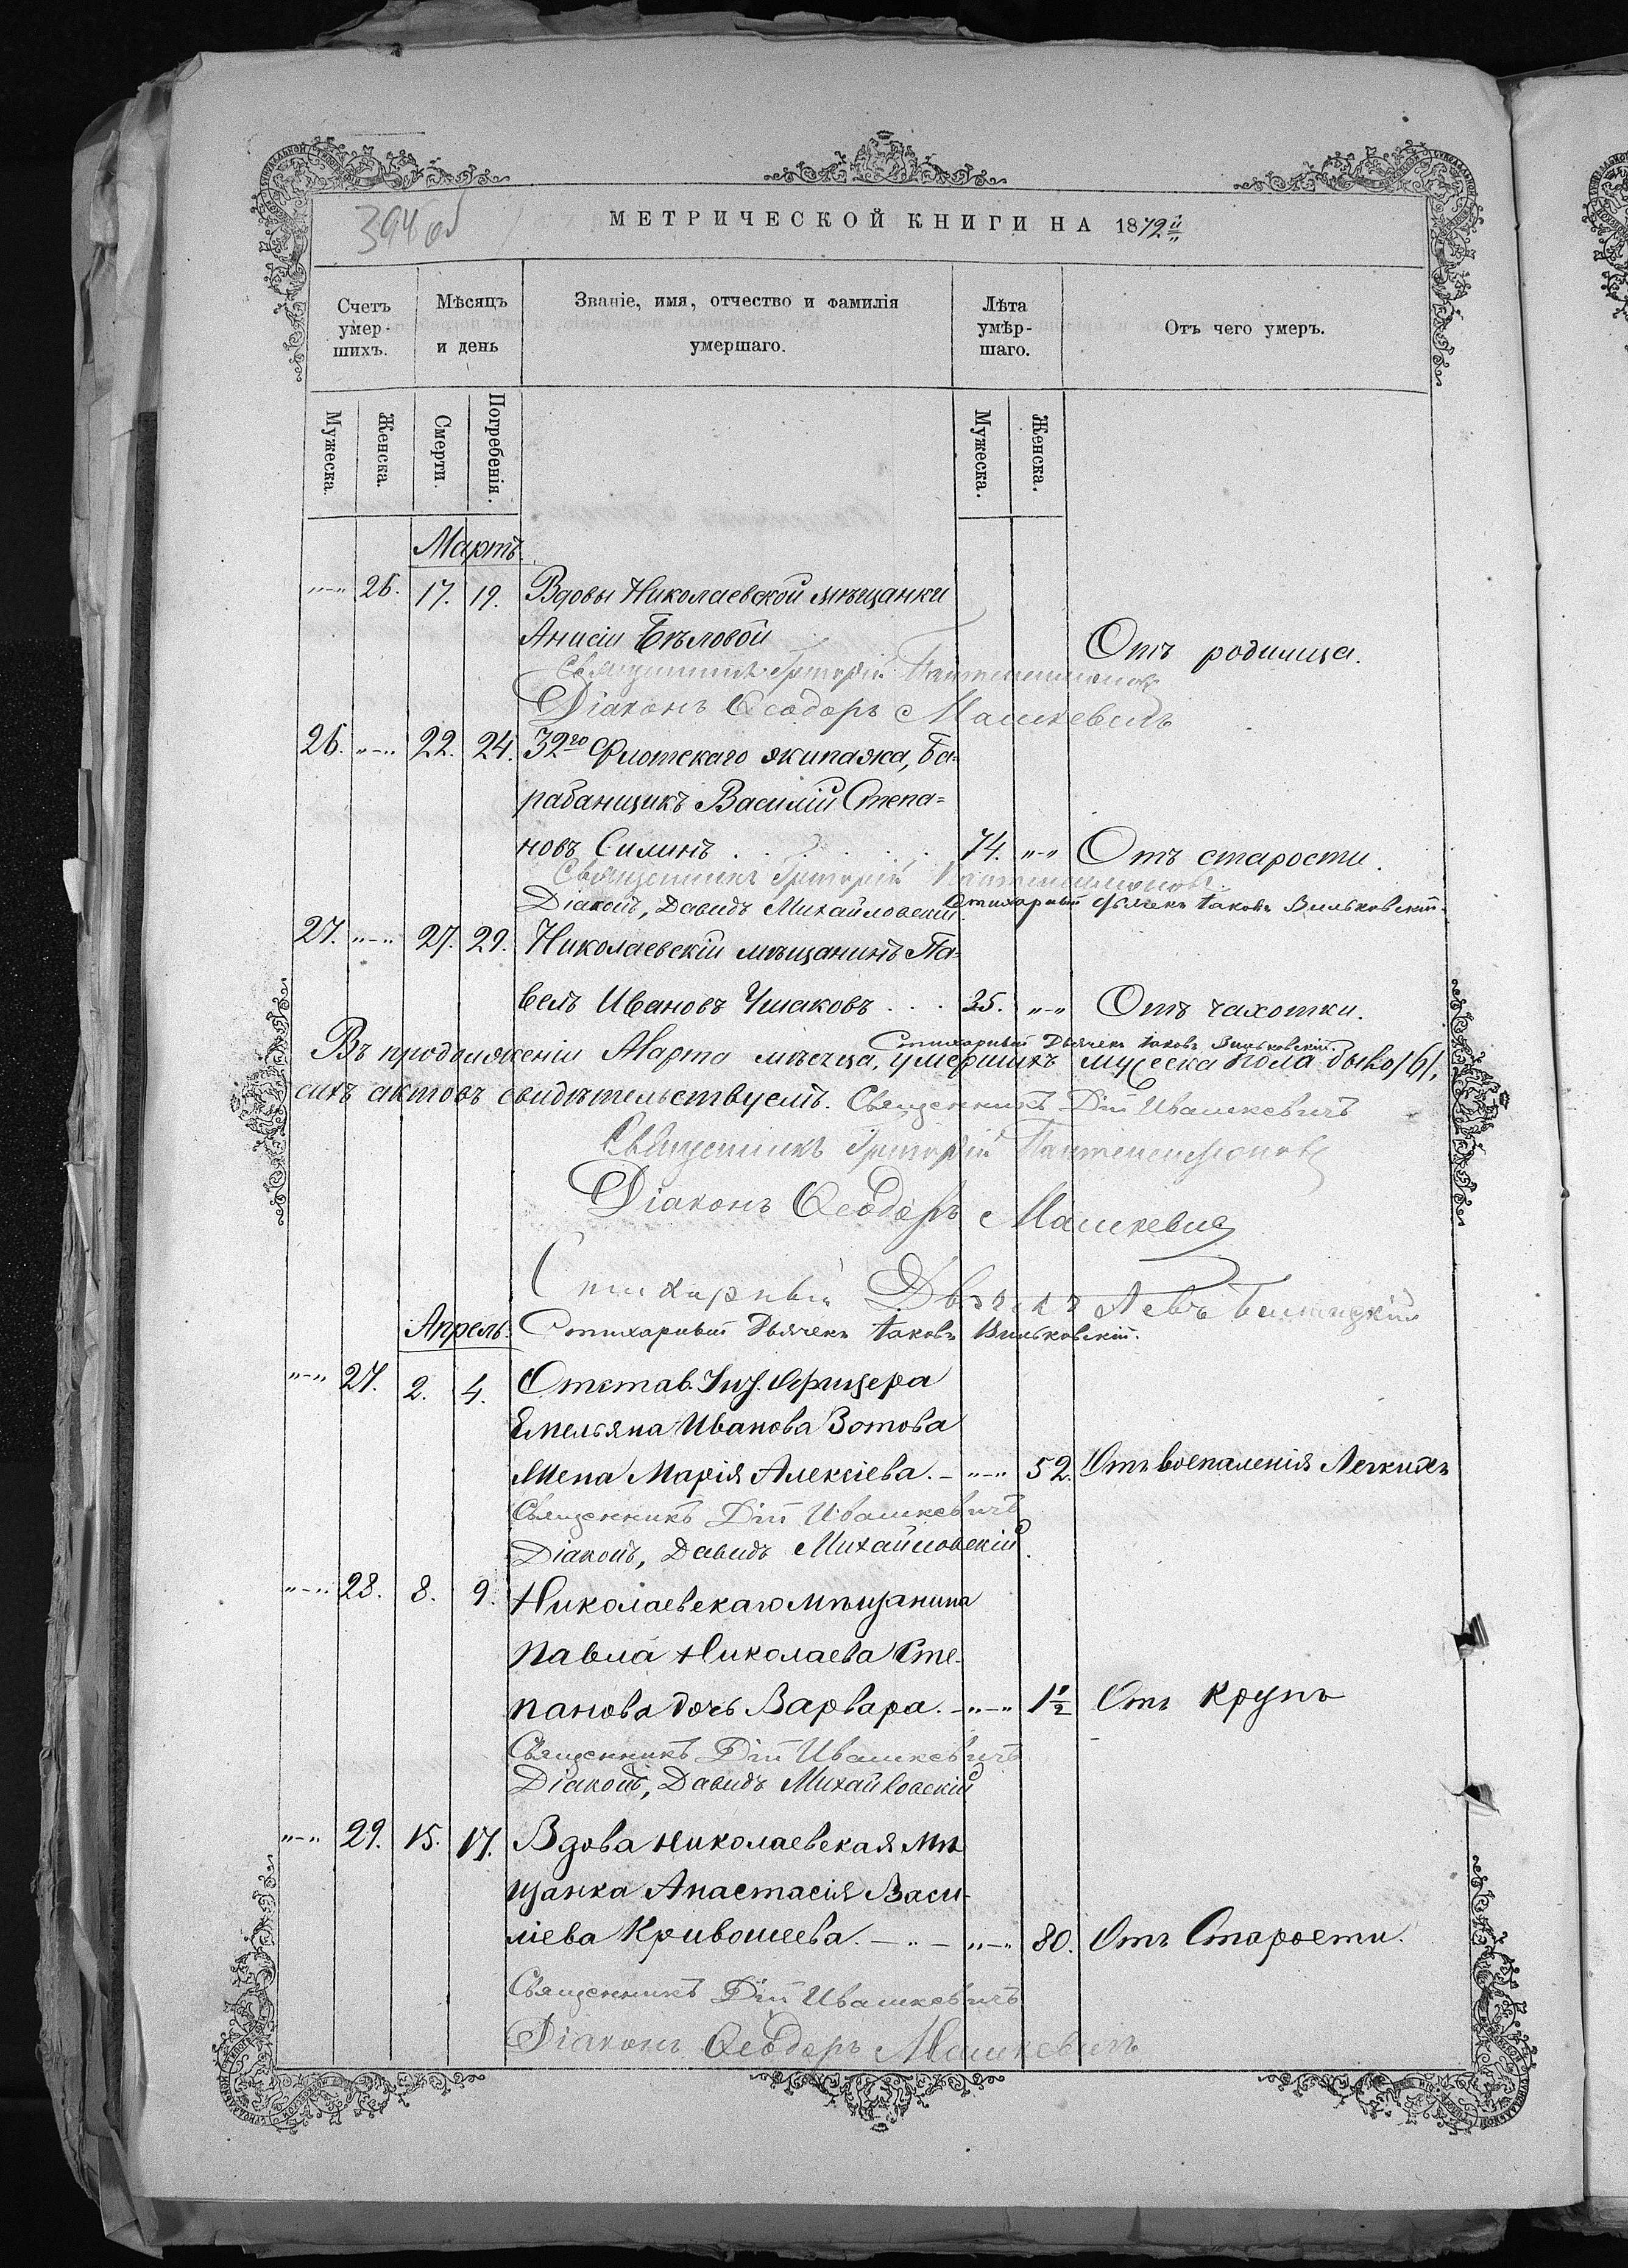 394 об
МЕТРИЧЕСКОЙ КНИГИ НА 1872й
Счетъ умер-шихъ.
Мѣсяцъ и день
Званіе, имя, отчество и фамилія умершаго.
Лѣта умѣр-шаго.
Отъ чего умеръ.
Мужеска.
Женска.
Смерти.
Погребенія.
Мужеска.
Женска.
Мартъ.
"-" 26. 17. 19. Вдовы Николаевской мѣщанки
Анисіи Бѣловой
Отъ родимца.
Священникъ Григорій
Діаконъ Ѳеодоръ Машкевичъ
26. "-" 22. 24. 32го Флотскаго экипажа, ба=
рабанщикъ Василій Степа=
новъ Силинъ . . . . . . 74. "-" Отъ старости.
Священникъ Григорій
Діаконъ, Давидъ Михайловскій. Стихарный Дьячекъ Іаковъ Виньковскій.
27. "-" 27. 29. Николаевскій мѣщанинъ Па=
велъ Ивановъ Ушаковъ . . . 35. "-" Отъ чахотки.
Стихарный Дьячекъ Іаковъ Виньковскій.
Въ продолженіи Марта мѣсяца, умершихъ мужеска пола было /6/,
сихъ актовъ свидѣтельствуемъ. Священникъ Дій Ивашкевичъ
Священникъ Григорій
Діаконъ Ѳеодоръ Машкевичъ
Стихарный Дьячекъ Левъ
Апрель. Стихарный Дьячекъ Іаковъ Виньковскій.
"-" 27. 2. 4. Отстав. Унт. Офицера
Емельяна Иванова Зотова
Жена Марія Алексіева. - "-" 52. Отъ воспаленія Легкихъ
Священникъ Дій Ивашкевичъ
Діаконъ, Давидъ Михайловскій.
"-" 28. 8. 9. Николаевскаго мѣщанина
Павла Николаева Сте-
панова дочь Варвара. - "-" 1½ Отъ Крупъ
Священникъ Дій Ивашкевичъ
Діаконъ, Давидъ Михайловскій
"-" 29. 15. 17. Вдова Николаевская Мѣ
щанка Анастасія Васи-
ліева Кривошеева. - " - "-" 80. Отъ Старости.
Священникъ Дій Ивашкевичъ
Діаконъ Ѳеодоръ Машкевичъ